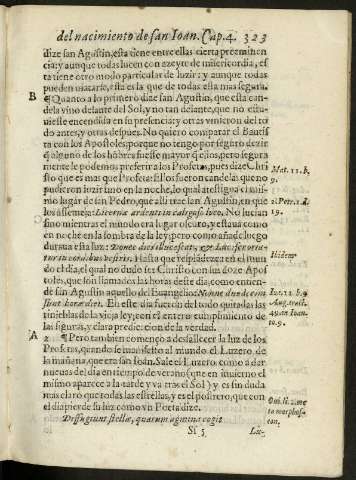 del nacimiento de san Ioan. Cap.4. 323
dize san Agustin, esta tiene entre ellas cierta preeminen
cia: y aunque todas lucen con azeyte de misericordia, es
ta tiene otro modo particular de luzir: y aunque todas
pueden matarse, esta es la que de todas esta mas segura.
B ¶Quanto a lo primero dize san Agustin, que esta can
dela vino delante del Sol, y no tan delante, que no estu
uieste encendida en su presencia: y otras vinieron del to
do antes, y otras despues. No quiero comparar el Bautis
ta con los Apostoles: porque no tengo por seguro dezir
q̃ alguno de los hõbres fuesse mayor q̃ ellos, pero segura
mente le podemos preferir a los Profetas, pues dize Chri
sto que es mas que Profeta: Ellos fueron candelas que no
pudieron luzir sino en la noche, lo qual atestigua el mis
mo lugar de san Pedro, que alli trae san Agustin, en que
los assemeja: Lucernæ ardenti in caliginoso loco. No lucian
sino mientras el mundo era lugar oscuro, y estaua como
en noche en la sombra de la ley: pero como añade luego
duraua esta luz: Donec dies illucescat, & Lucifer oria-
tur in cordibus vestris. Hasta que resplandezca en el mun
do el dia, el qual no dudo ser Christo con sus doze Apos
toles, que son llamados las horas deste dia, como entien-
de san Agustin aquello del Euangelio: Nonne duodecim
sunt horæ diei. En este dia fueron del todo quitadas las
tinieblas de la vieja ley, con el entero cumplimiento de
las figuras, y clara predicacion de la verdad.
A 2 ¶Pero tambien començo a desfallecer la luz de los
Profetas, quando se manifesto al mundo el Luzero de
la mañana, que era san Ioan. Sale el Luzero a dar
nueuas del dia en tiempo de verano (que en inuierno el
mismo aparece a la tarde y va tras el Sol) y es sin duda
mas claro que todas las estrellas, y es el postrero, que con
el dia pierde su luz como vn Poeta dize.
Diffugiunt stellæ, quarum agmina cogit
Sf 5 Lu-
Mat. 11. b.
9.
2. Petr. 1. d.
19.
Ibidem
Ioa. 11. b. 9
Aug. tract.
49. in Ioan.
to. 9.
Oui. li. 2. me
ta morphos-
eon.